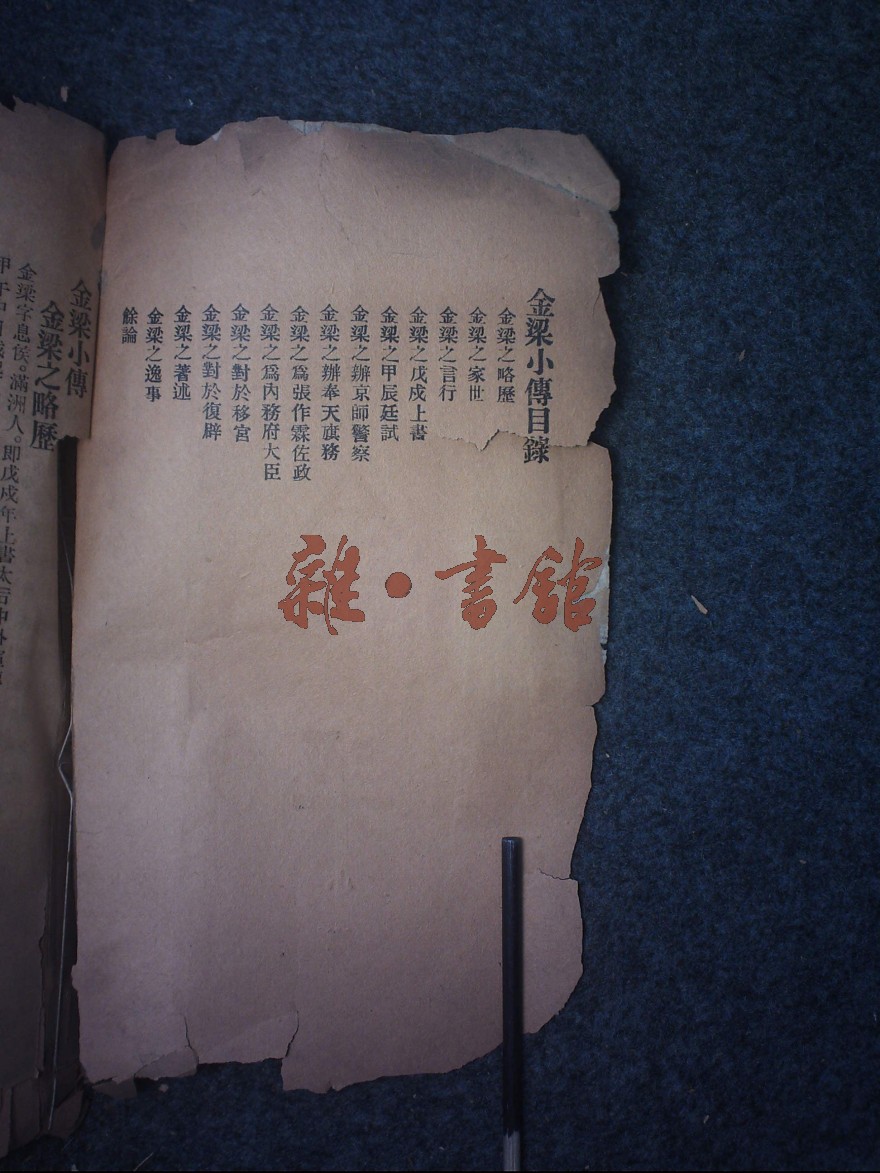 金梁小傳目錄
金梁之略歷
金梁之家世
金梁之言行
金梁之戊戍上書
金梁之甲辰廷試
金梁之辦京師警察
金梁之辦奉天旗務
金梁之爲張作霖佐政
金梁之爲內務府大臣
金梁之對於移宮
金梁之對於復辟
金梁之著述
金梁之逸事
餘論
雜·書館
金梁小傳
金梁之略歷
金梁字息侯。滿洲人。即戊戍年上書太后